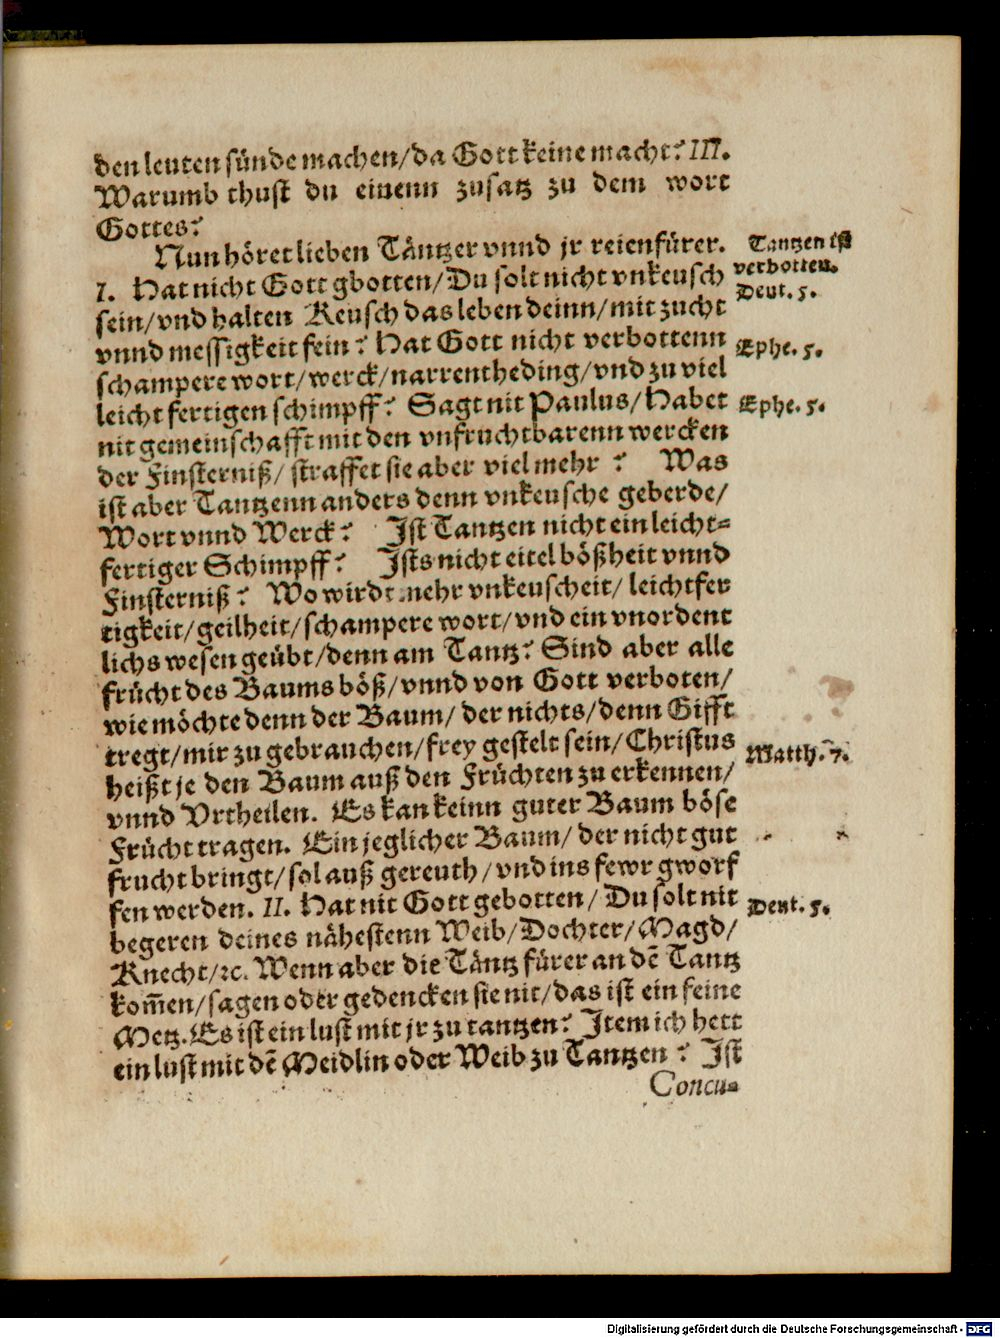 den leuten sünde machen/da Gott keine macht? III.
Warumb thust du einenn zusatz zu dem wort
Gottes?
Nun höret lieben Täntzer vnnd jr reienfürer.
Tantzen ist
verbotten.
I. Hat nicht Gott gbotten/Du solt nicht vnkeusch
Deut. 5.
sein/vnd halten Keusch das leben deinn/mit zucht
vnnd messigkeit fein? Hat Gott nicht verbottenn
Ephe. 5.
schampere wort/werck/narrentheding/vnd zu viel
leicht fertigen schimpff? Sagt nit Paulus/Habet
Ephe. 5.
nit gemeinschafft mit den vnfruchtbarenn wercken
der Finsterniß/ straffet sie aber viel mehr ? Was
ist aber Tantzenn anders denn vnkeusche geberde/
Wort vnnd Werck? Ist Tantzen nicht ein leicht-
fertiger Schimpff? Ists nicht eitel bößheit vnnd
Finsterniß? Wo wirdt mehr vnkeuscheit/ leichtfer
tigkeit/geilheit/schampere wort/vnd ein vnordent
lichs wesen geübt/denn am Tantz? Sind aber alle
frücht des Baums böß/vnnd von Gott verboten/
wie möchte denn der Baum/ der nichts/denn Gifft
tregt/mir zu gebrauchen/frey gestelt sein/Christus
Matth. 7.
heißt je den Baum auß den Früchten zu erkennen/
vnnd Vrtheilen. Es kan keinn guter Baum böse
Frücht tragen. Ein jeglicher Baum/ der nicht gut
frucht bringt/sol auß gereuth/vnd ins fewr gworf
fen werden. II. Hat nit Gott gebotten/ Du solt nit
Deut. 5.
begeren deines nähestenn Weib/Dochter/Magd/
Knecht/ꝛc. Wenn aber die Täntz fürer an dẽ Tantz
kom̃en/sagen oder gedencken sie nit/das ist ein feine
Metz. Es ist ein lust mit jr zu tantzen? Item ich hett
ein lust mit dẽ Meidlin oder Weib zu Tantzen ? Ist
Concu-
Digitalisierung gefördert durch die Deutsche Forschungsgemeinschaft - DFG